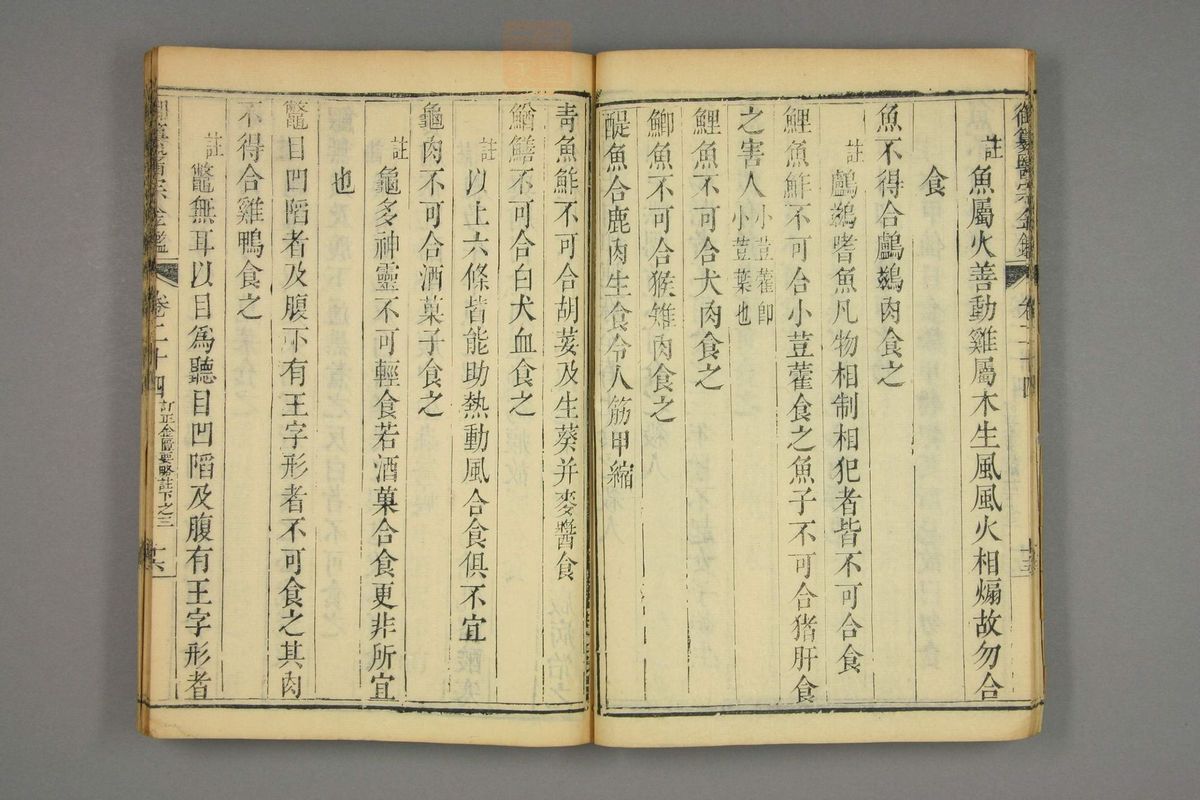 御纂醫宗金鑑 卷二十四
註魚屬火善動雞屬木生風風火相煽故勿合
食
魚不得合鸕鷀肉食之
註鸕鷀嗜魚凡物相制相犯者皆不可合食
鯉魚鮓不可合小荳藿食之魚子不可合猪肝食
之害人小荳藿卽
小荳葉也
鯉魚不可合犬肉食之
鯽魚不可合猴雉肉食之
鯷魚合鹿肉生食令人筋甲縮
青魚鮓不可合胡荽及生葵并麥醬食
鰌鱔不可合白犬血食之
註以上六條皆能助熱動風合食俱不宜
龜肉不可合酒菓子食之
註龜多神靈不可輕食若酒菓合食更非所宜
也
鼈目凹陷者及腹下有王字形者不可食之其肉
不得合雞鴨食之
註鼈無耳以目爲聽目凹陷及腹有王字形者
卷二十四 訂正金匱要略註下之三 十六